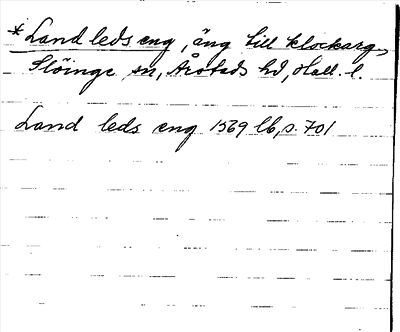 *Land leds eng, äng till klockarg.,
Slöinge sn, Årstads hd, Hall. l.
Land leds eng 1569 lb, s. 701